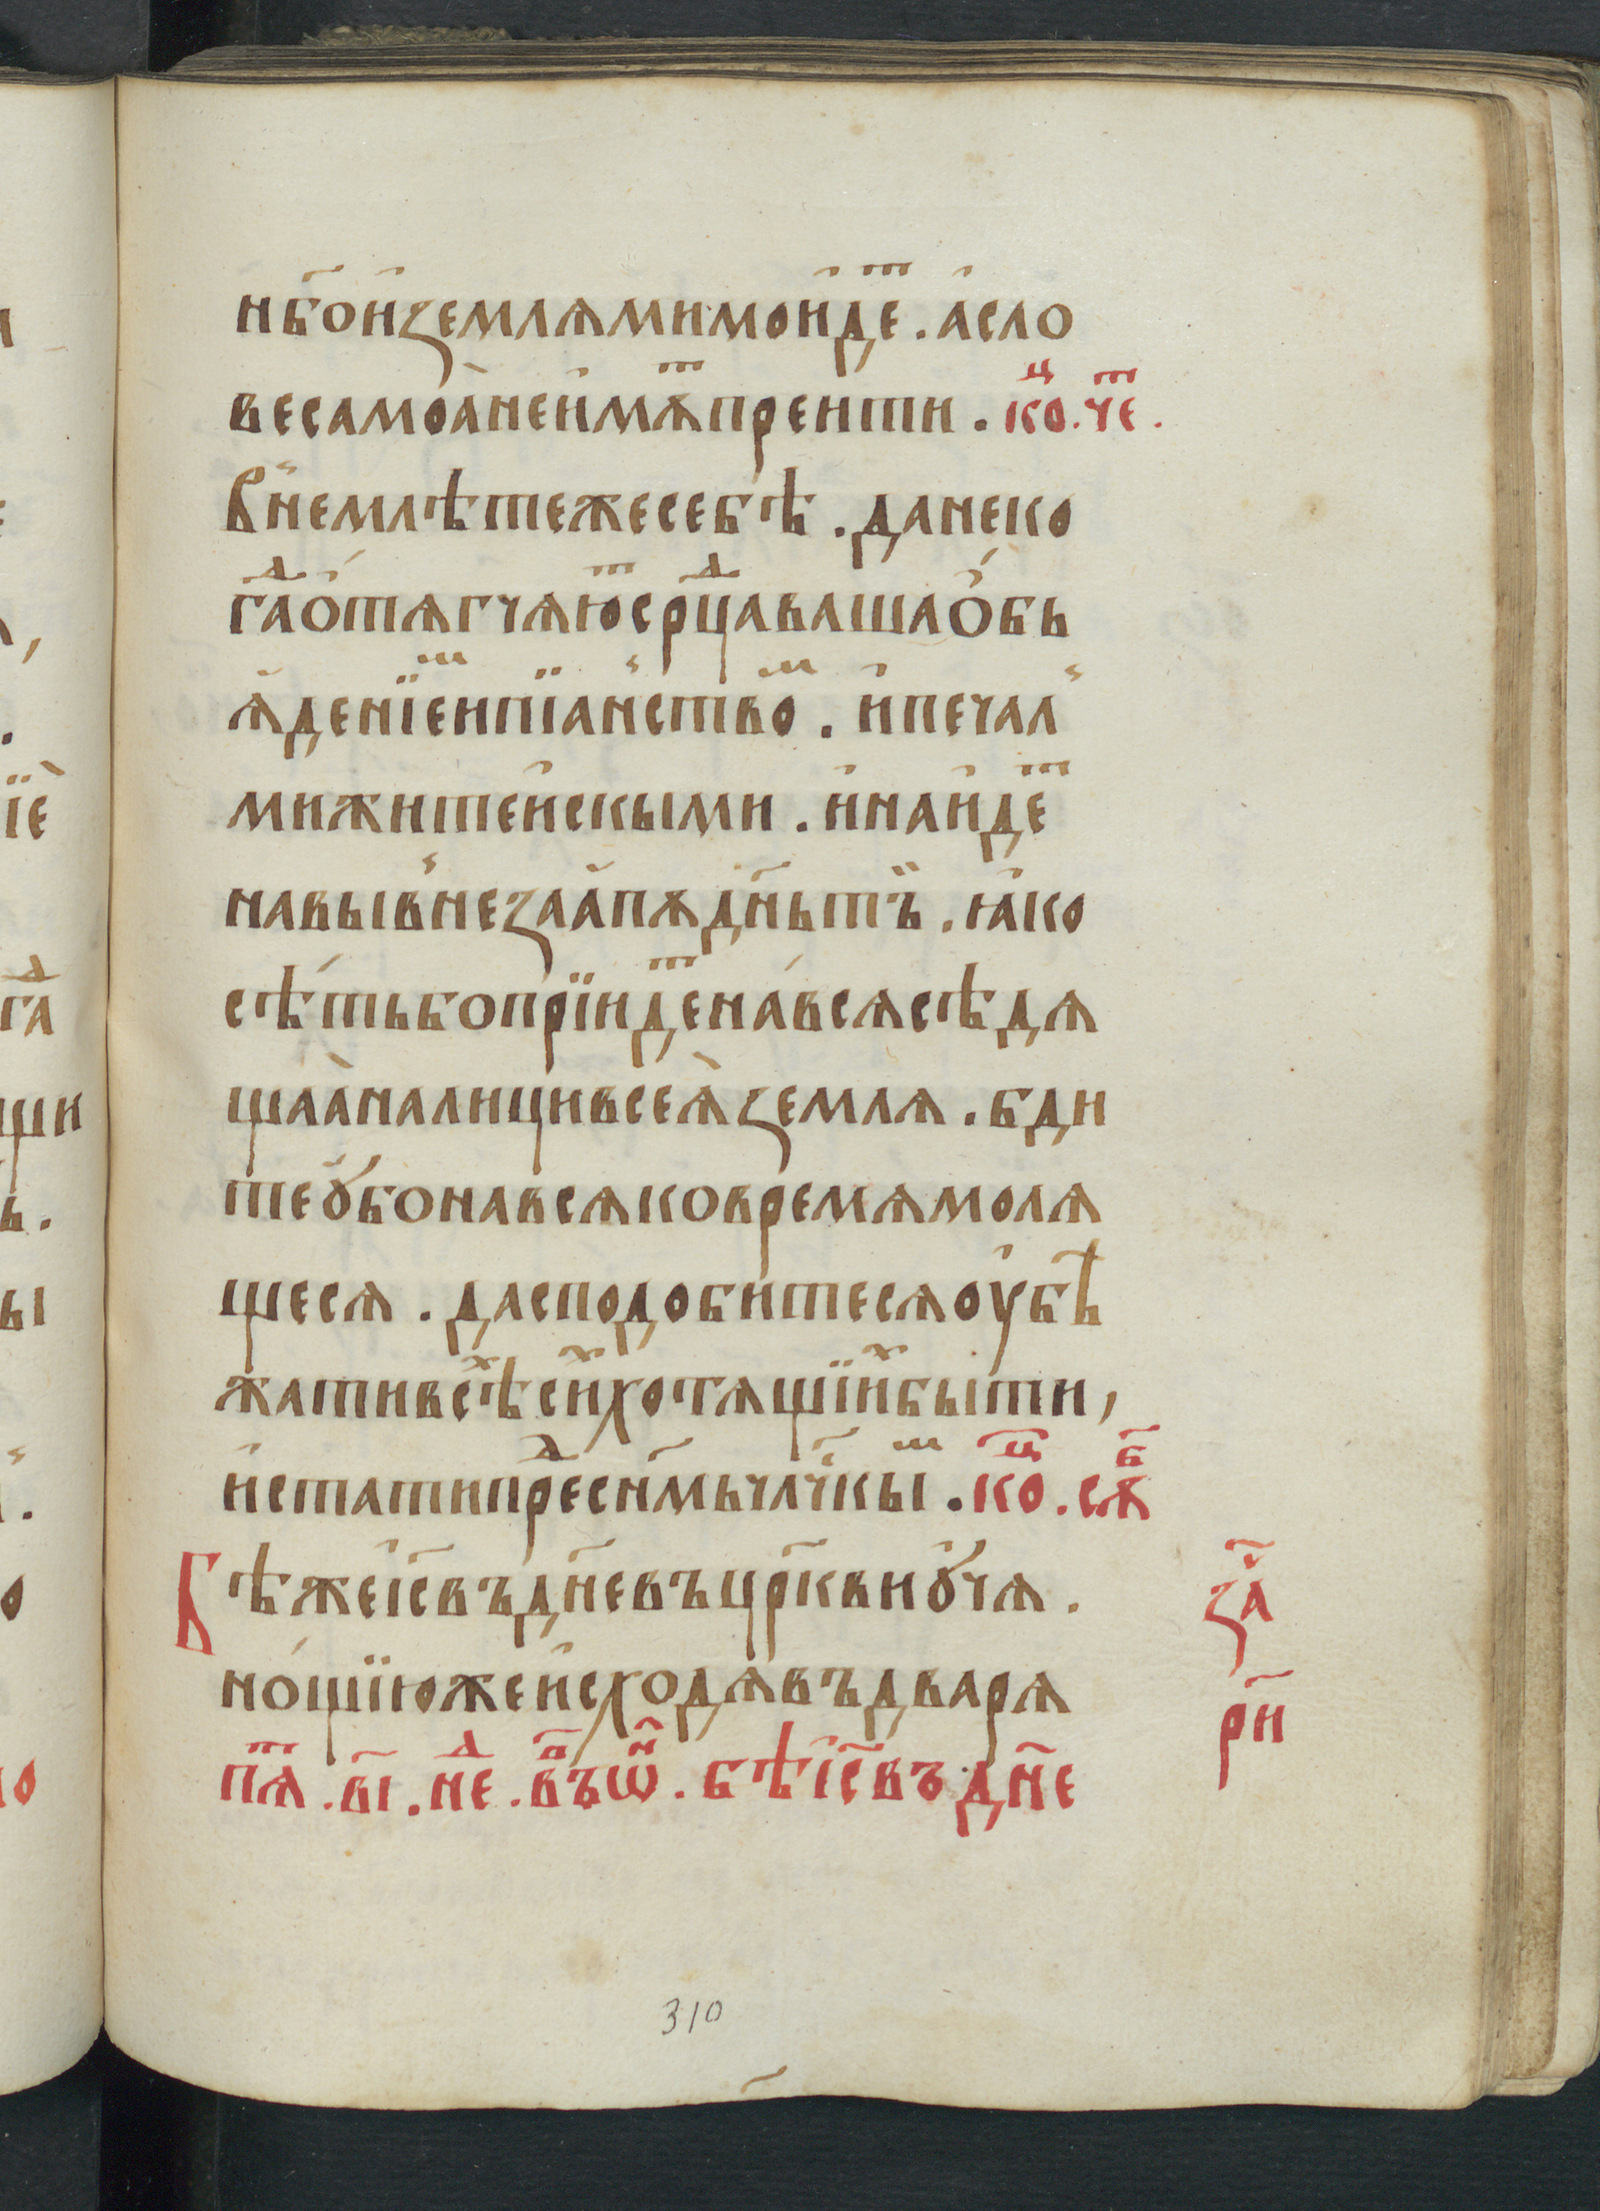 нб҃о и҆ землѧ мимои҆деⷮ . а҆ сло
веса моѧ̀ не и҆мѫⷮ прентн . коⷰ҇ . чеⷮ .
Вн҆емлѣте же себѣ . да не ко
гаⷣ о҆тѧгчѧюⷮ срⷣца ваша о҆бь
ꙗ҆денїеⷨ и пїан҆ствоⷨ . и҆ печал҆
ми житеи҆скыми . и҆ наи҆деⷮ
на вы вн҆езаа҆пѫ дн҃ь тъ̈ . ꙗ҆ко
сѣ́ть бо прїидеⷮ на́ всѧ сѣдѧ
щаѧ̀ на лици всеѧ̀ землѧ . бди
те ᲂу҆бо на всѧко времѧ молѧ
щесѧ . да сподобитесѧ оу҆бѣ
жати всѣⷯ сиⷯ хотѧщїиⷯ быти ,
и҆ стати преⷣ сн҃мь чл҃чкыⷨ . коⷰ҇ . сѫⷠ
Бѣ же і҆с҃ въ дн҃е въ цр҃кви ᲂу҆чѧ .
но́щїю же и҆сходѧ въдварѧ
пѧⷮ . в҃і . неⷣ . въⷫ҇ ѡⷩ . бѣ і҆с҃ въ дн҃е
за҃
ри҃
310